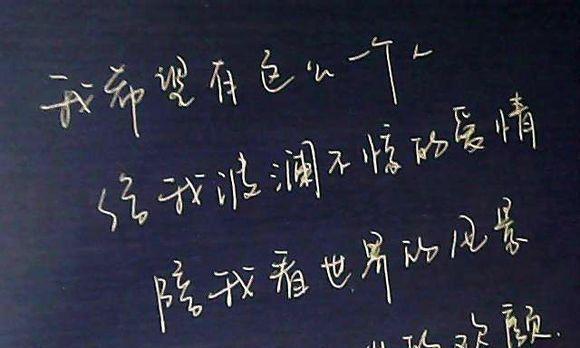 我希望有这么一个人
给我波澜不惊的爱情
陪我看世界的风景
的欢颜.